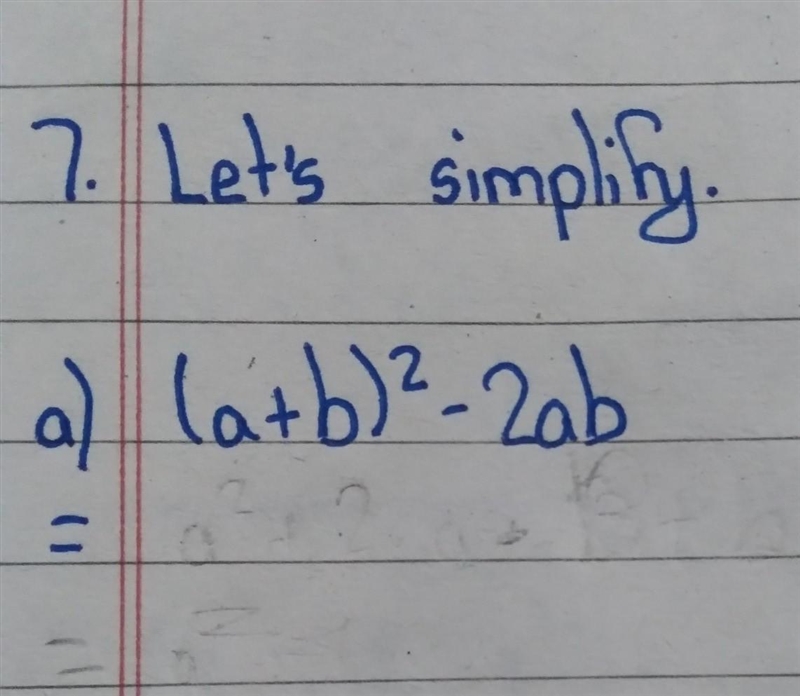 7. Let's simplify.
a) (a+b)² - 2ab
=
=